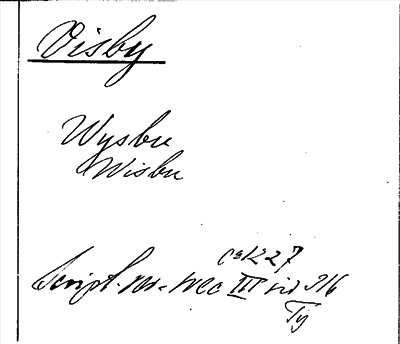 Visby
Wysbu
Wisbu
ca 1227
Script. rer. svec III sid 316
Ty